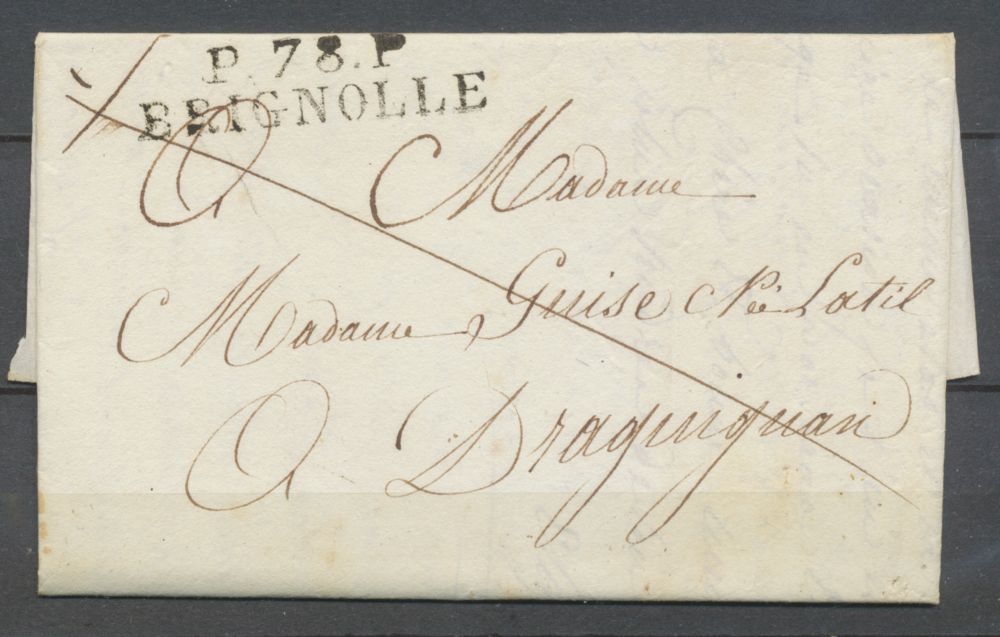 P. 78. P
BRIGNOLLE
A Madame
Madame Guise Née Latil
A Draguignan